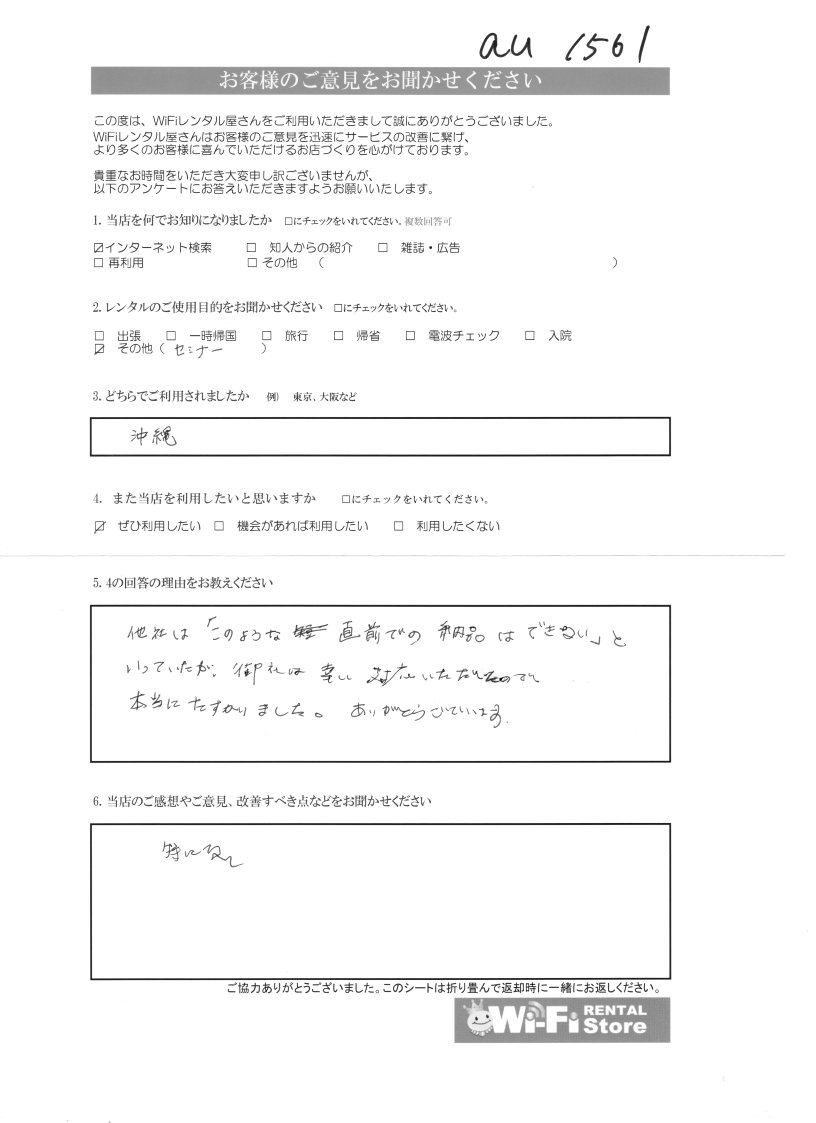 au 1561
お客様のご意見をお聞かせください
この度は、WiFiレンタル屋さんをご利用いただきまして誠にありがとうございました。
WiFiレンタル屋さんはお客様のご意見を迅速にサービスの改善に繋げ、
より多くのお客様に喜んでいただけるお店づくりを心がけております。
貴重なお時間をいただき大変申し訳ございませんが、
以下のアンケートにお答えいただきますようお願いいたします。
1. 当店を何でお知りになりましたか □にチェックをいれてください。複数回答可
☑インターネット検索 □ 知人からの紹介 □ 雑誌・広告
□ 再利用 □ その他 ( )
2. レンタルのご使用目的をお聞かせください □にチェックをいれてください。
□ 出張 □ 一時帰国 □ 旅行 □ 帰省 □ 電波チェック □ 入院
☑ その他 ( セミナー )
3. どちらでご利用されましたか 例) 東京、大阪など
沖縄
4. また当店を利用したいと思いますか □にチェックをいれてください。
☑ ぜひ利用したい □ 機会があれば利用したい □ 利用したくない
5. 4の回答の理由をお教えください
他社は「このような 直前での 納品は できない」と
いっていたが、御社は 対応いただけたので
本当に たすかりました。 ありがとうございます。
6. 当店のご感想やご意見、改善すべき点などをお聞かせください
特になし
ご協力ありがとうございました。このシートは折り畳んで返却時に一緒にお返しください。
Wi-Fi RENTAL Store